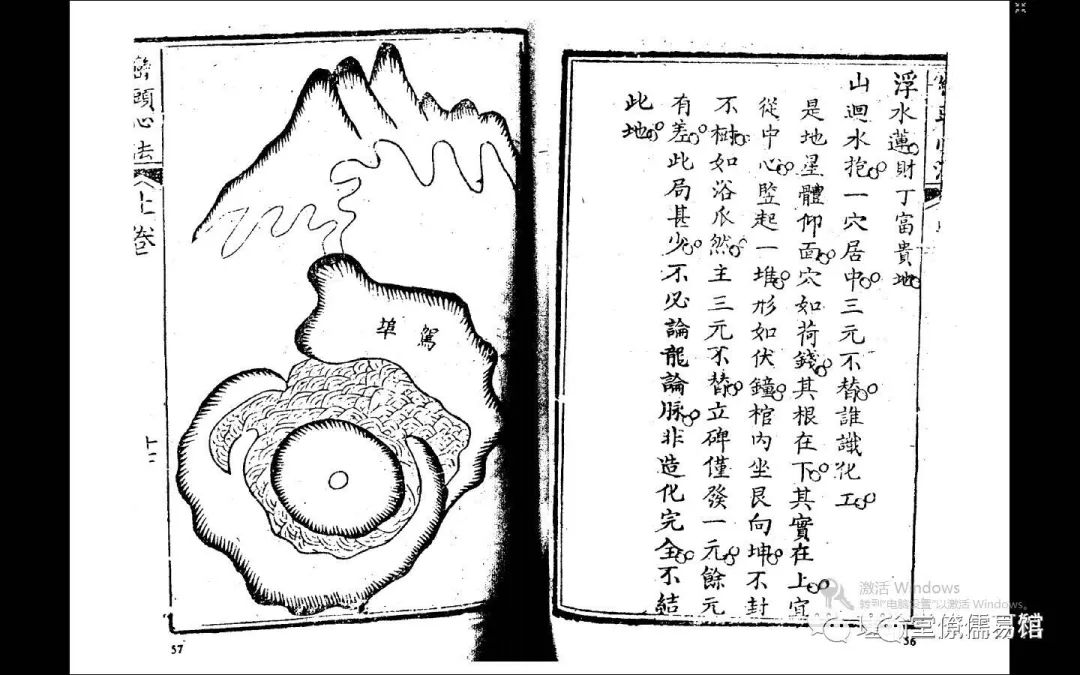 浮水蓮財丁富貴地
山迴水抱一穴居中三元不替誰識化工
是地星體仰面穴如荷錢其根在下其實在上宜
從中心竪起一堆形如伏鐘棺內坐艮向坤不封
不樹如浴爪然主三元不替立碑僅發一元餘元
有差此局甚少不必論龍論脉非造化完全不結
此地
56
駕埠
巒頭心法
上卷
十二
57
激活 Windows
转到"电脑设置"以激活 Windows。
堂僚儒易馆